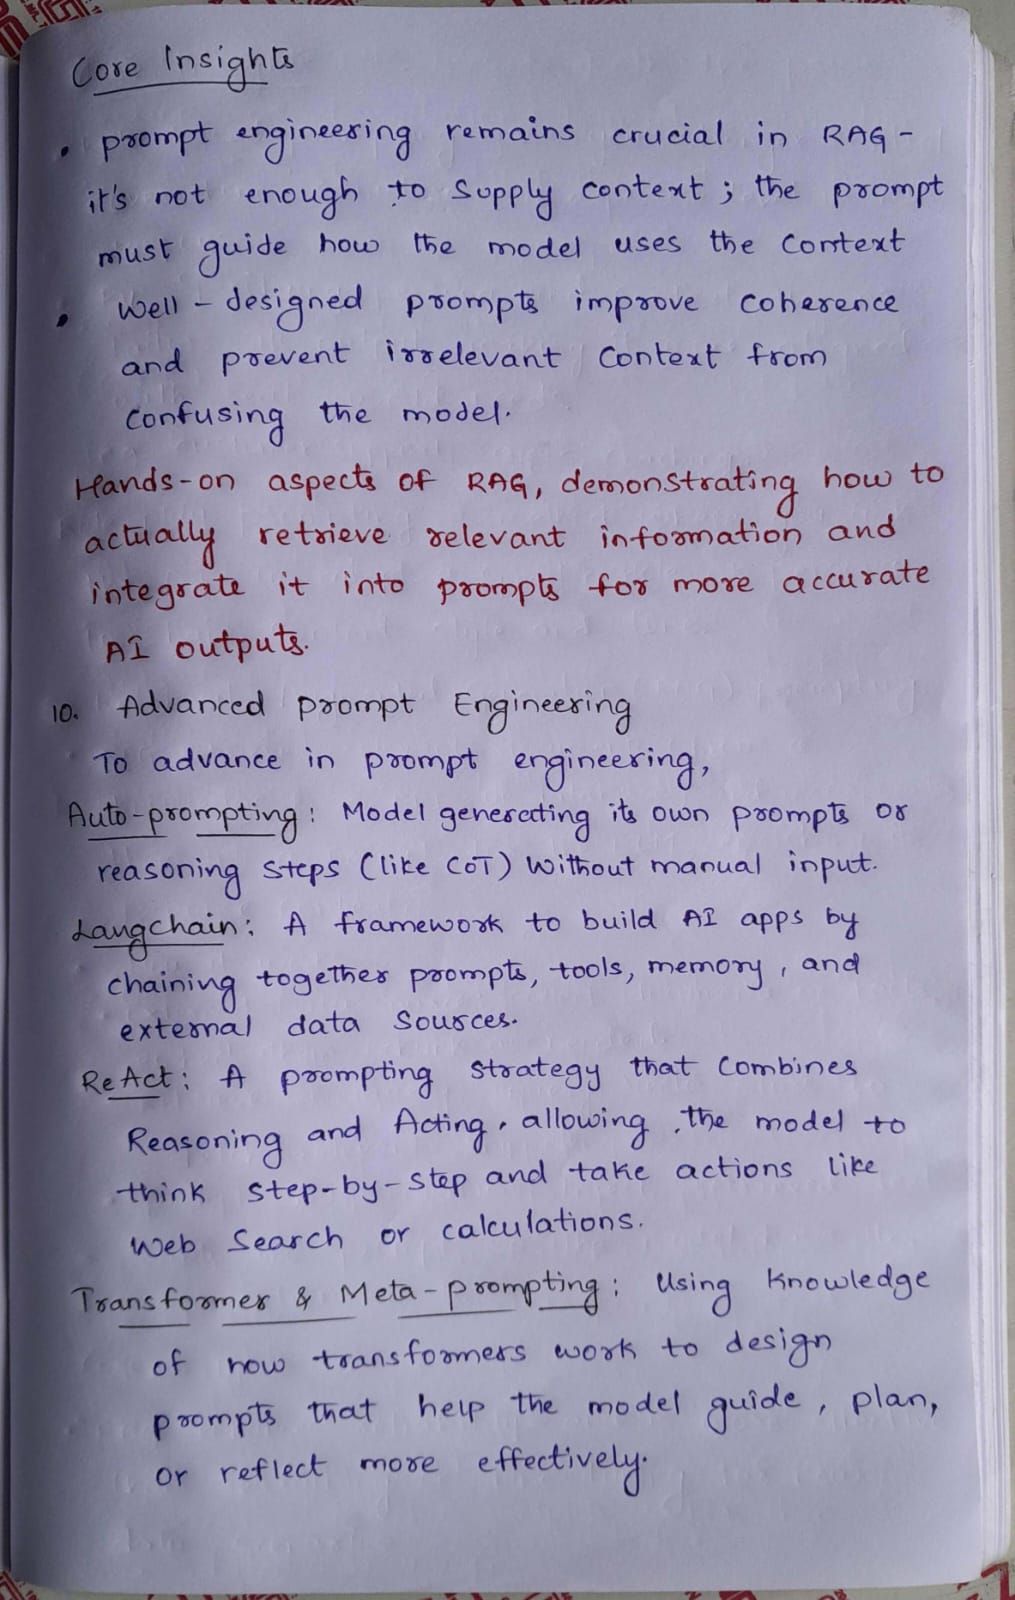 Core Insights
• prompt engineering remains crucial in RAG -
it's not enough to supply context; the prompt
must guide how the model uses the context
• well-designed prompts improve coherence
and prevent irrelevant context from
confusing the model.
Hands-on aspects of RAG, demonstrating how to
actually retrieve relevant information and
integrate it into prompts for more accurate
AI outputs.
10. Advanced prompt Engineering
To advance in prompt engineering,
Auto-prompting: Model generating its own prompts or
reasoning steps (like COT) without manual input.
Langchain: A framework to build AI apps by
chaining together prompts, tools, memory, and
external data sources.
ReAct: A prompting strategy that combines
Reasoning and Acting, allowing the model to
think step-by-step and take actions like
web search or calculations.
Transformer & Meta-prompting: Using knowledge
of how transformers work to design
prompts that help the model guide, plan,
or reflect more effectively.